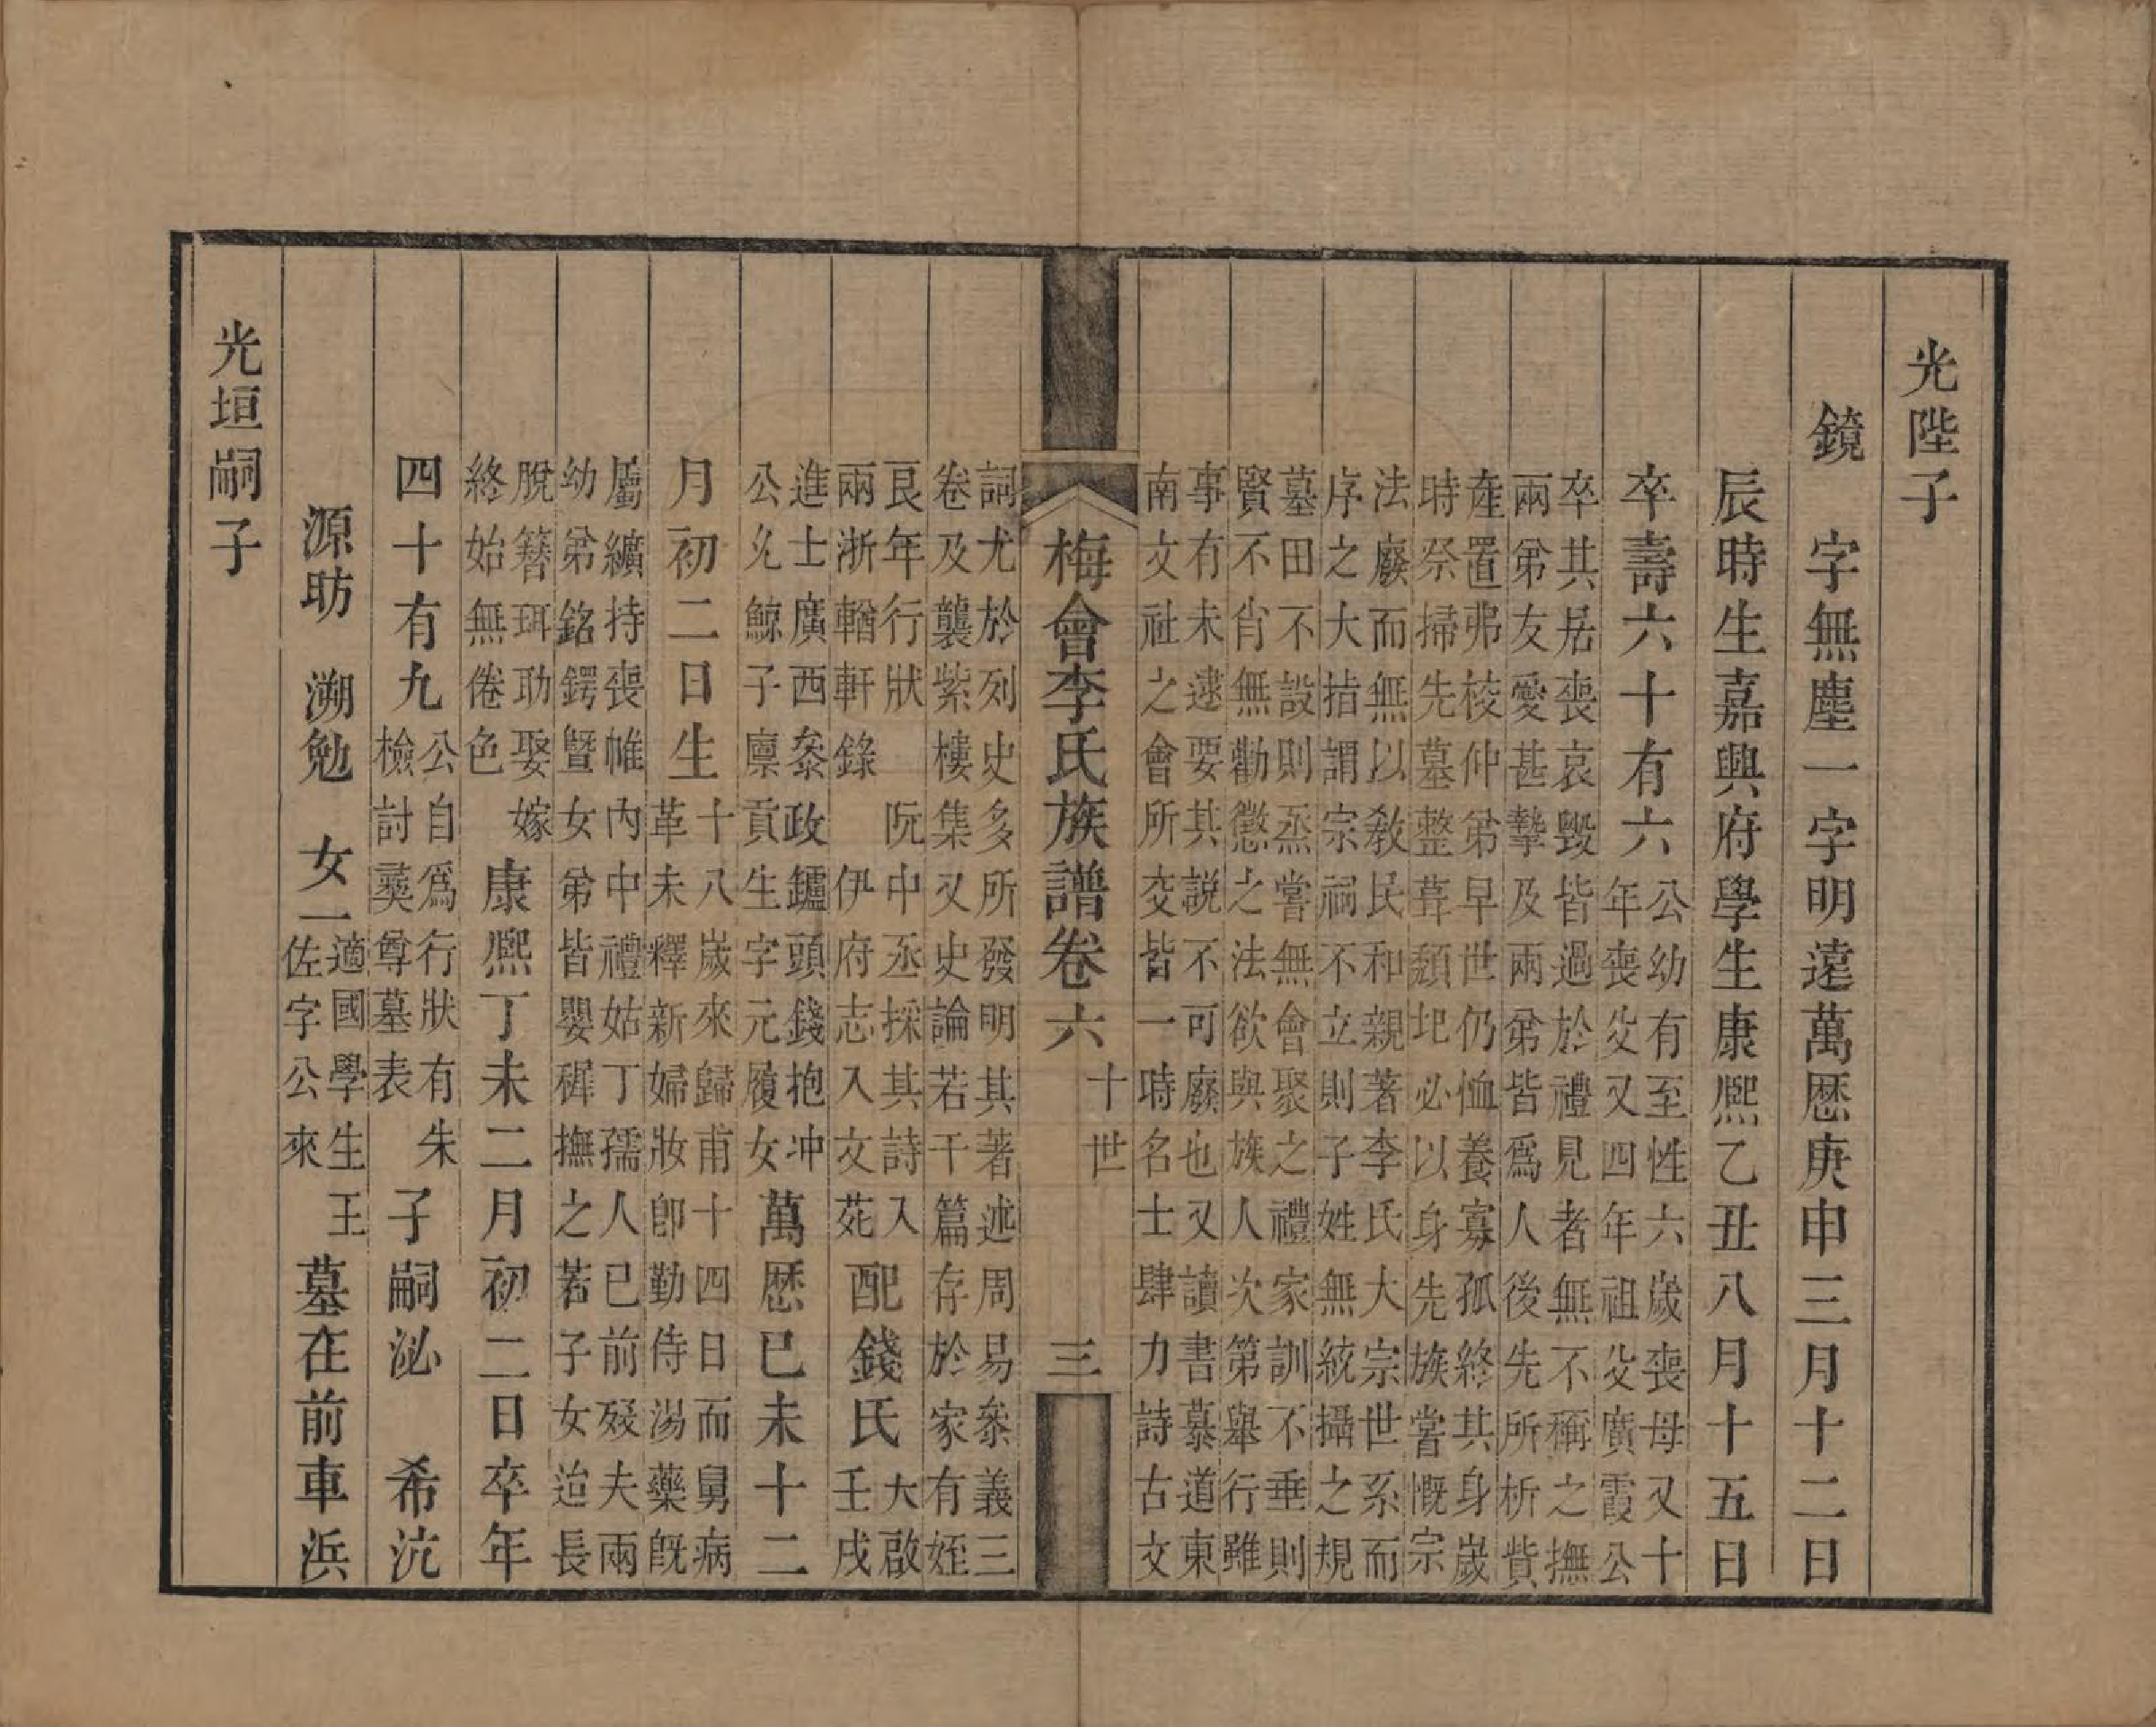 光陛子
鏡　字無塵一字明遠萬厯庚申三月十二日
辰時生嘉興府學生康熈乙丑八月十五日
卒壽六十有六
公幼有至性六歲喪母又十
年喪父又四年祖父廣霞公
卒共居喪哀毀皆過於禮見者無不稱之撫
兩弟友愛甚摯及兩弟皆爲人後先所析貲
產置弗校仲弟早世仍恤養寡孤終其身歲
時祭掃先墓整葺頽圯必以身先族嘗慨宗
法廢而無以敎民和親著李氏大宗世系而
序之大指謂宗祠不立則子姓無統攝之規
墓田不設則烝嘗無會聚之禮家訓不垂則
賢不肖無勸懲之法欲與族人次第舉行雖
事有未逮要其說不可廢也又讀書慕道東
南文社之會所交皆一時名士肆力詩古文
梅會李氏族譜卷六
十世
三
詞尤於列史多所發明其著述周易叅義三
卷及襲紫樓集又史論若干篇存於家有姪
艮年行狀　阮中丞採其詩入
兩浙輶軒錄　伊府志入文苑
配錢氏
大啟
壬戌
進士廣西叅政鑪頭錢抱冲
公允鯨子廩貢生字元履女
萬厯己未十二
月初二日生
十八歲來歸甫十四日而舅病
革未釋新婦妝卽勤侍湯藥旣
屬纊持喪帷內中禮姑丁孺人已前歿夫兩
幼弟銘鍔暨女弟皆嬰穉撫之若子女迨長
脫簪珥助娶嫁
終始無倦色
康熈丁未二月初二日卒年
四十有九
公自爲行狀有朱
檢討彝尊墓表
子嗣泌　希沆
源昉　溯勉　女一
適國學生王
佐字公來
墓在前車浜
光垣嗣子